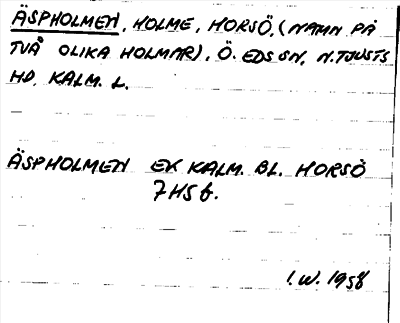 ÄSPHOLMEN, HOLME, HORSÖ, (NAMN PÅ
TVÅ OLIKA HOLMAR), Ö. EDS SN, N. TJUSTS
HD, KALM. L.
ÄSPHOLMEN EK KALM. BL. HORSÖ
7H5b.
I.W. 1958